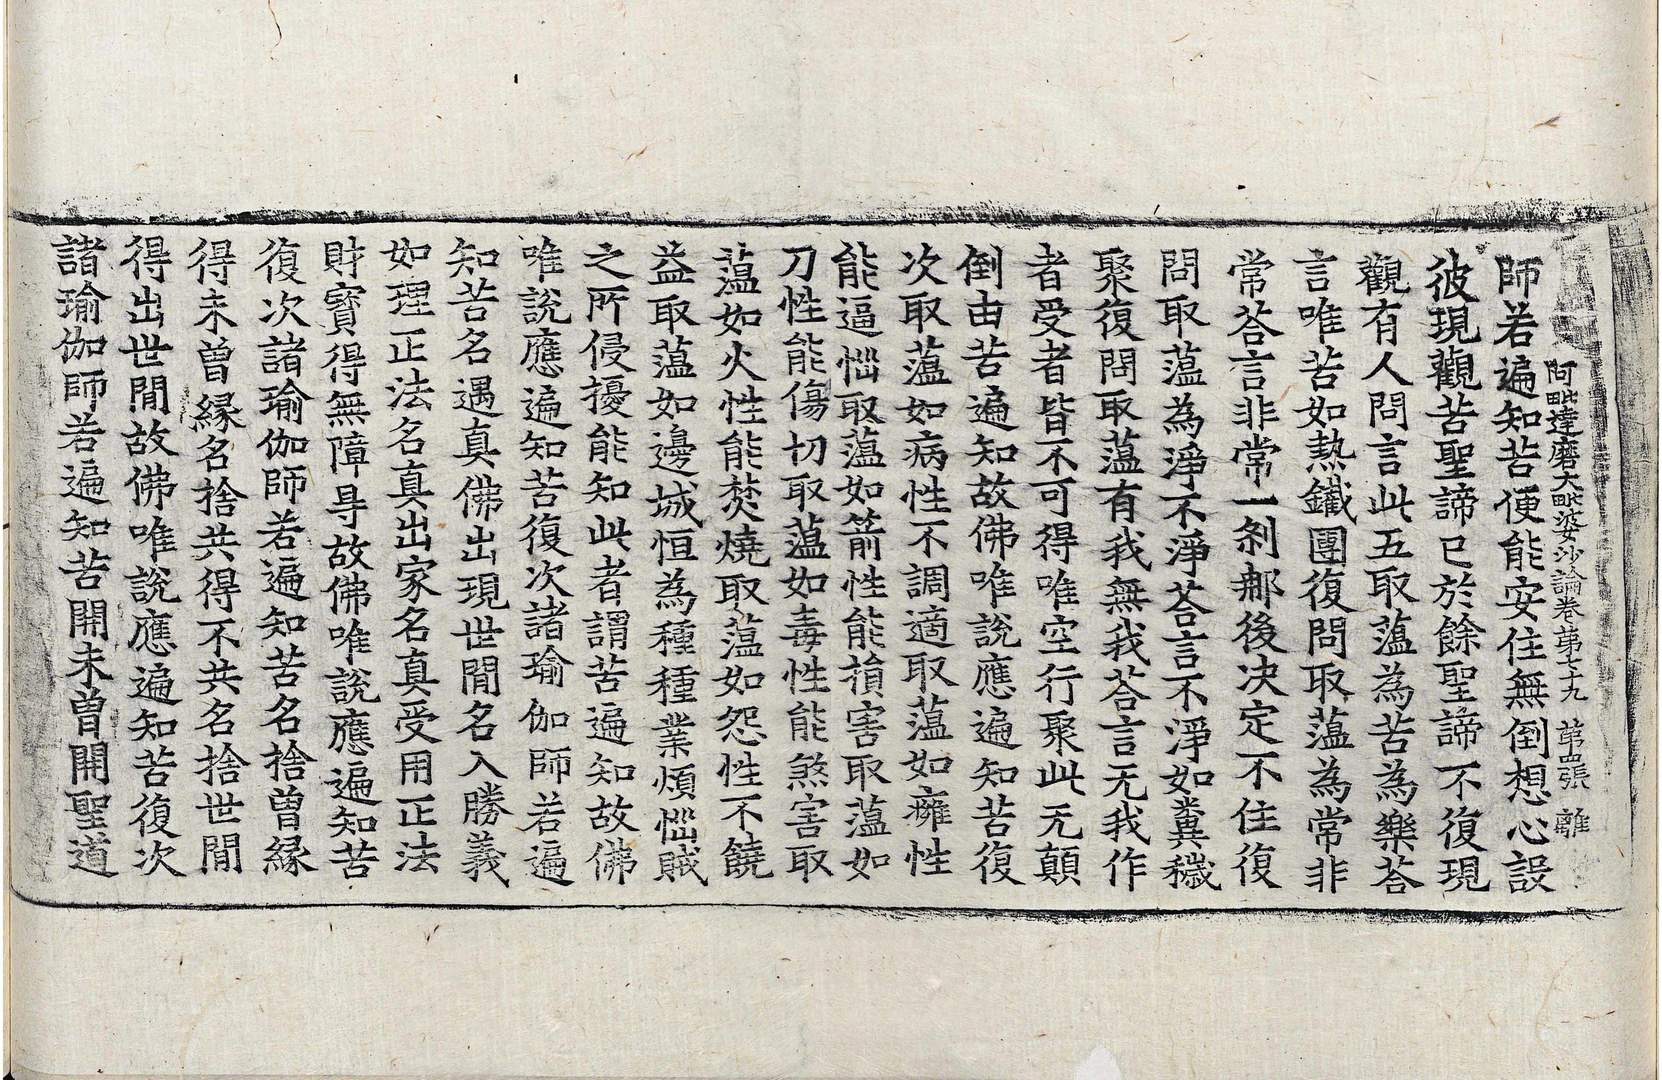 阿毗達磨大毗婆沙論卷第七十九　第四張　離
師若遍知苦便能安住無倒想心設
彼現觀苦聖諦已於餘聖諦不復現
觀有人問言此五取蘊為苦為樂荅
言唯苦如熱鐵團復問取蘊為常非
常荅言非常一剎那後决定不住復
問取蘊為淨不淨荅言不淨如糞穢
聚復問取蘊有我無我荅言无我作
者受者皆不可得唯空行聚此无顛
倒由苦遍知故佛唯說應遍知苦復
次取蘊如病性不調適取蘊如癰性
能逼惱取蘊如箭性能損害取蘊如
刀性能傷切取蘊如毒性能煞害取
蘊如火性能焚燒取蘊如怨性不饒
益取蘊如邊城恒為種種業煩惱賊
之所侵擾能知此者謂苦遍知故佛
唯說應遍知苦復次諸瑜伽師若遍
知苦名遇真佛出現世閒名入勝義
如理正法名真出家名真受用正法
財寶得無障㝵故佛唯說應遍知苦
復次諸瑜伽師若遍知苦名捨曾緣
得未曾緣名捨共得不共名捨世閒
得出世閒故佛唯說應遍知苦復次
諸瑜伽師若遍知苦開未曾開聖道